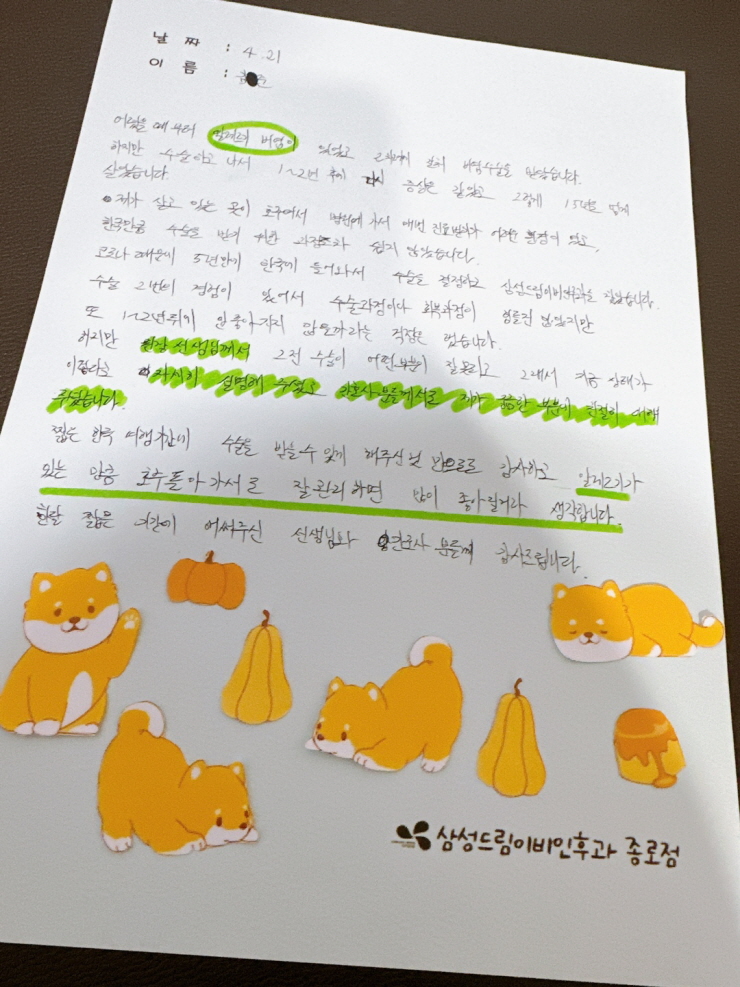 날 짜 : 4. 21
이 름 :
어렸을 때부터 알레르기 비염이 있었고 2차례 코의 비염수술을 받았습니다.
하지만 수술하고 나서 1~2년 후에 다시 증상은 같았고 그렇게 15년을 넘게
살았습니다.
제가 살고 있는 곳이 호주여서 병원에 가서 매번 진료받기가 어려운 환경이었고,
한국만큼 수술을 받기 위한 과정조차 쉽지 않았습니다.
코로나 때문에 5년만에 한국에 들어와서 수술을 결정하고 삼성드림이비인후과를 찾았습니다.
수술 2번의 경험이 있어서 수술과정이나 회복과정이 힘들진 않았지만
또 1~2년뒤에 안 좋아지지 않을까라는 걱정은 했습니다.
하지만 원장 선생님께서 그전 수술이 어떤부분이 잘못되고 그래서 지금 상태가
이렇다고 자세히 설명해 주셨고 간호사분들께서도 제가 궁금한 부분에 친절히 대해
주셨습니다.
짧은 한국 여행기간에 수술을 받을 수 있게 해주신것 만으로도 감사하고 알레르기가
있는 만큼 호주 돌아가서도 잘 관리하면 많이 좋아질거라 생각합니다.
한달 짧은 기간에 애써주신 선생님과 간호사 분들께 감사드립니다.
삼성드림이비인후과 종로점